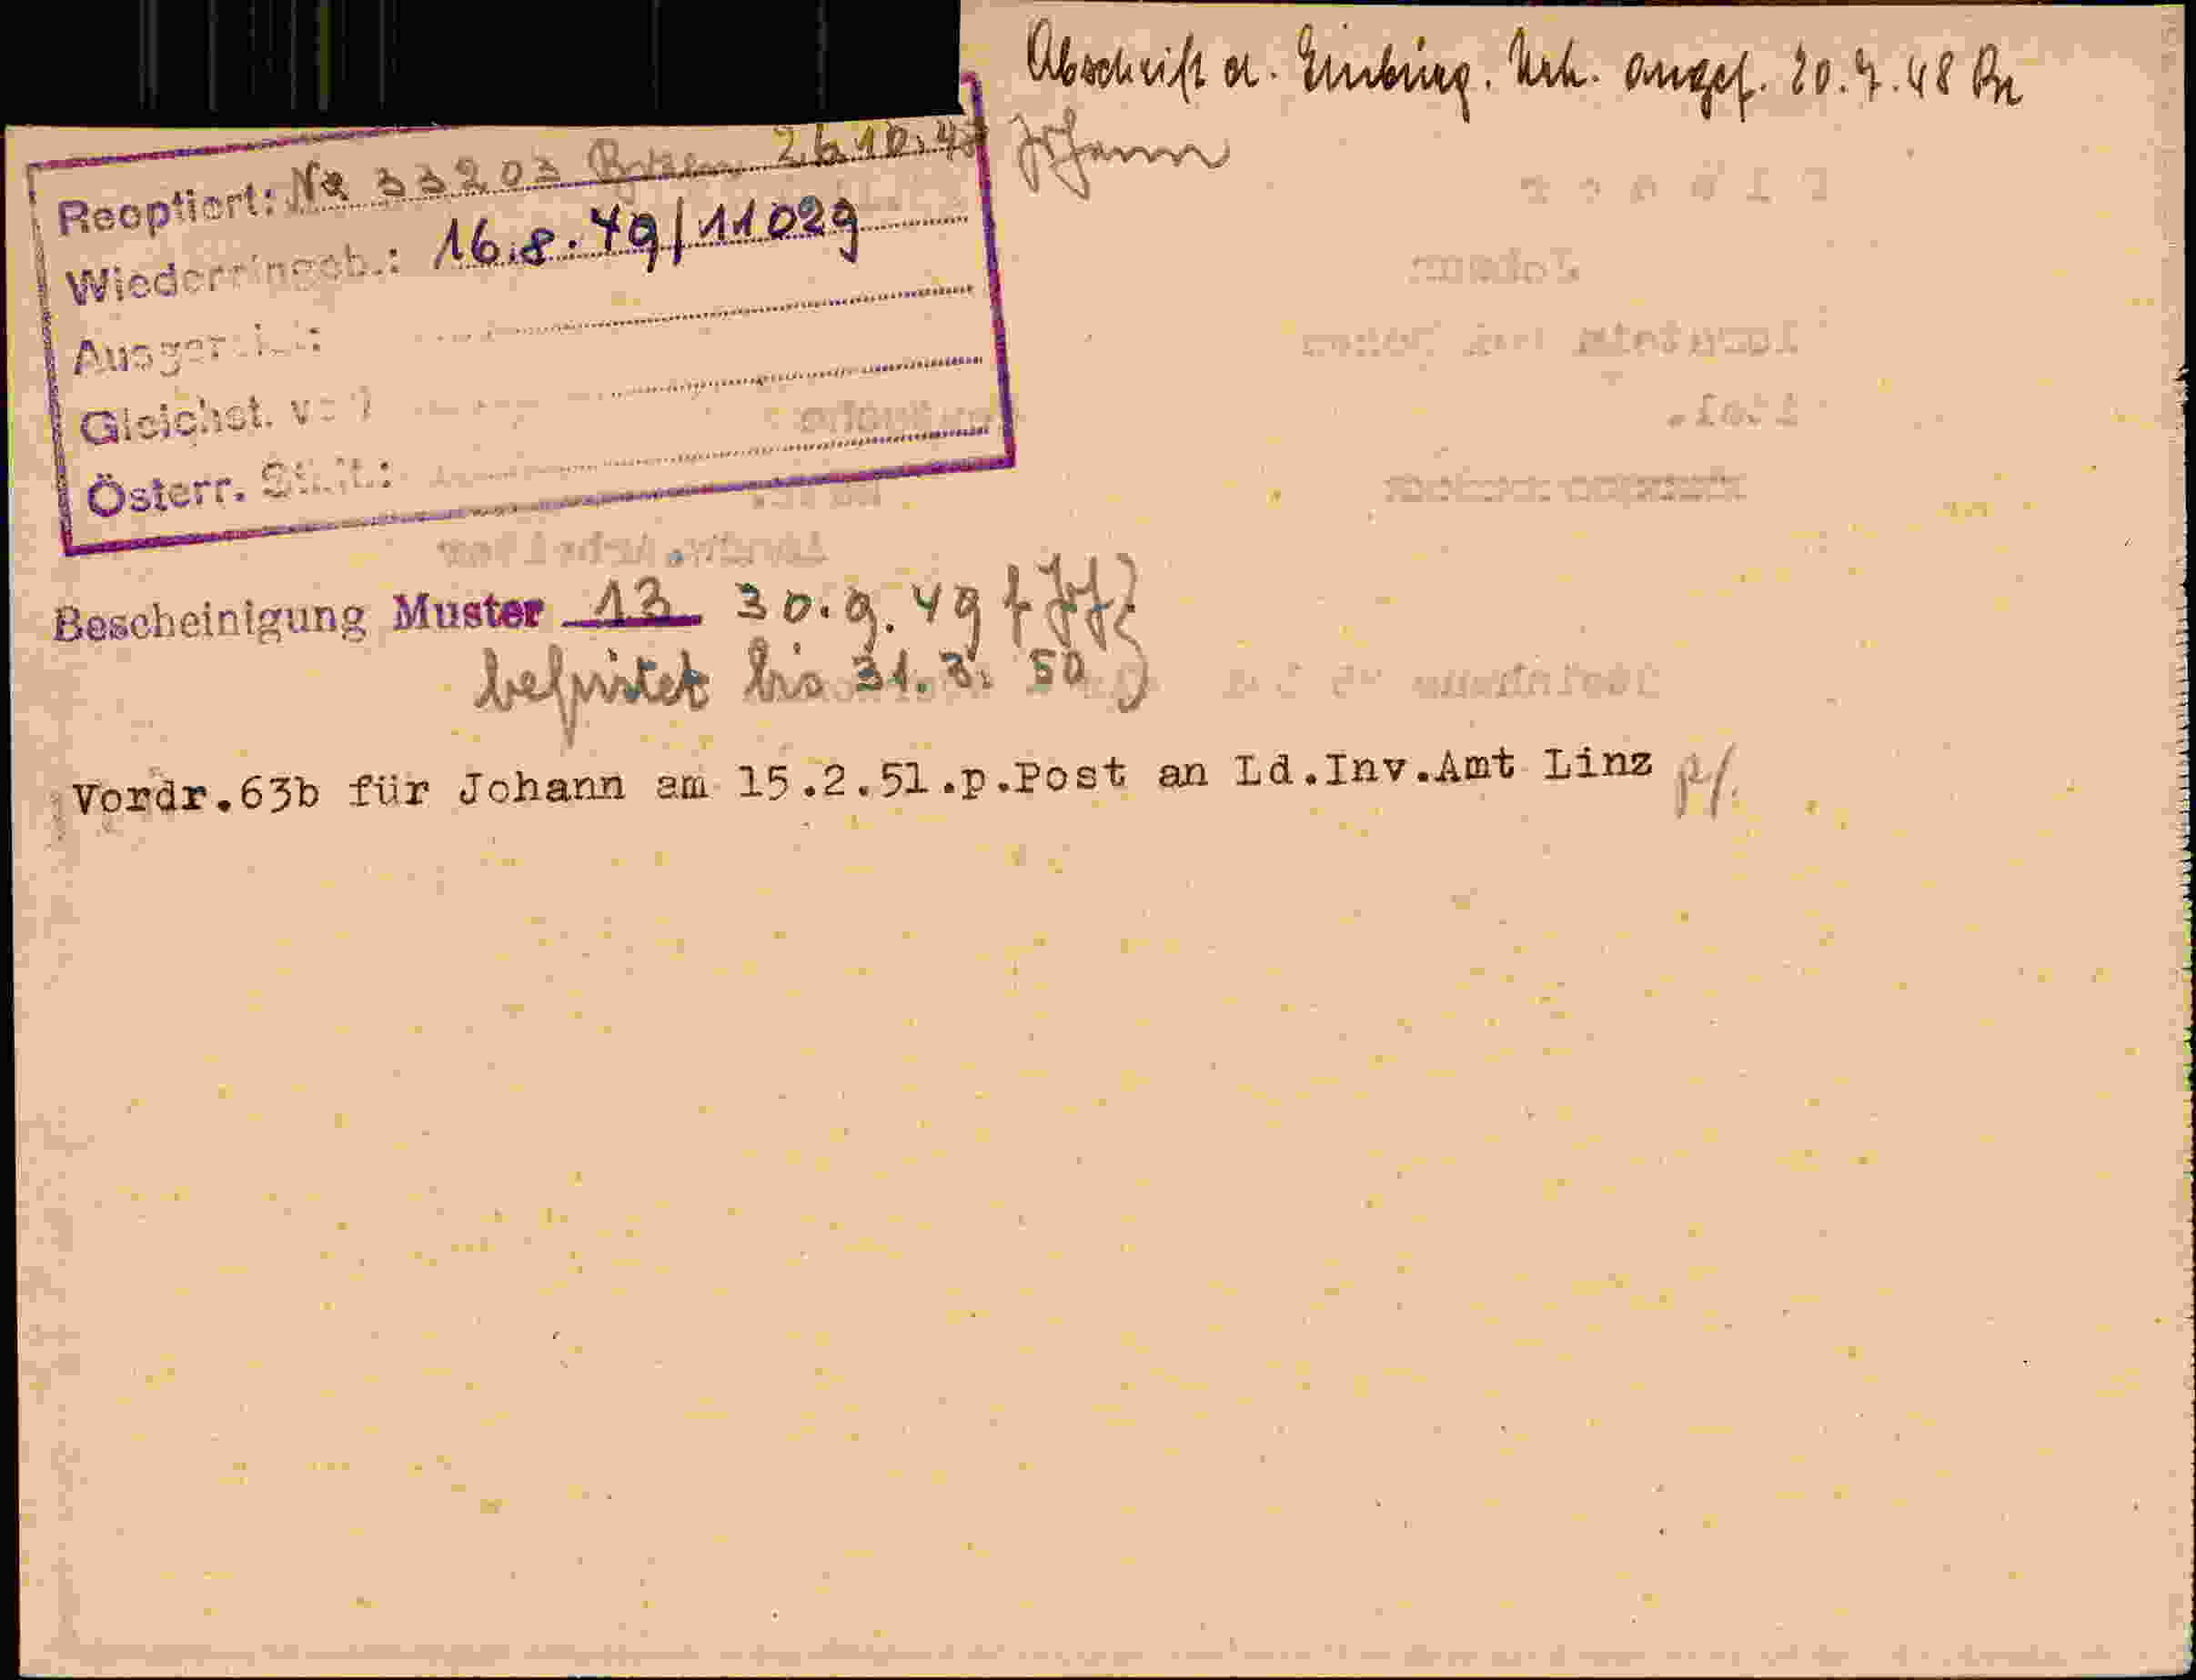 Abschrift d. Einbürg. Urk. angef. 20.7.48
Johann
Reoptiert: No 33203 Bozen 26.10.48
Wiedereingeb.: 16.8.49/11029
Ausgereist:
Gleichst. v.
Österr. Stbt.:
Bescheinigung Muster 13 30.9.49 f. Joh.
befristet bis 31.3.50
Vordr.63b für Johann am 15.2.51.p.Post an Ld.Inv.Amt Linz